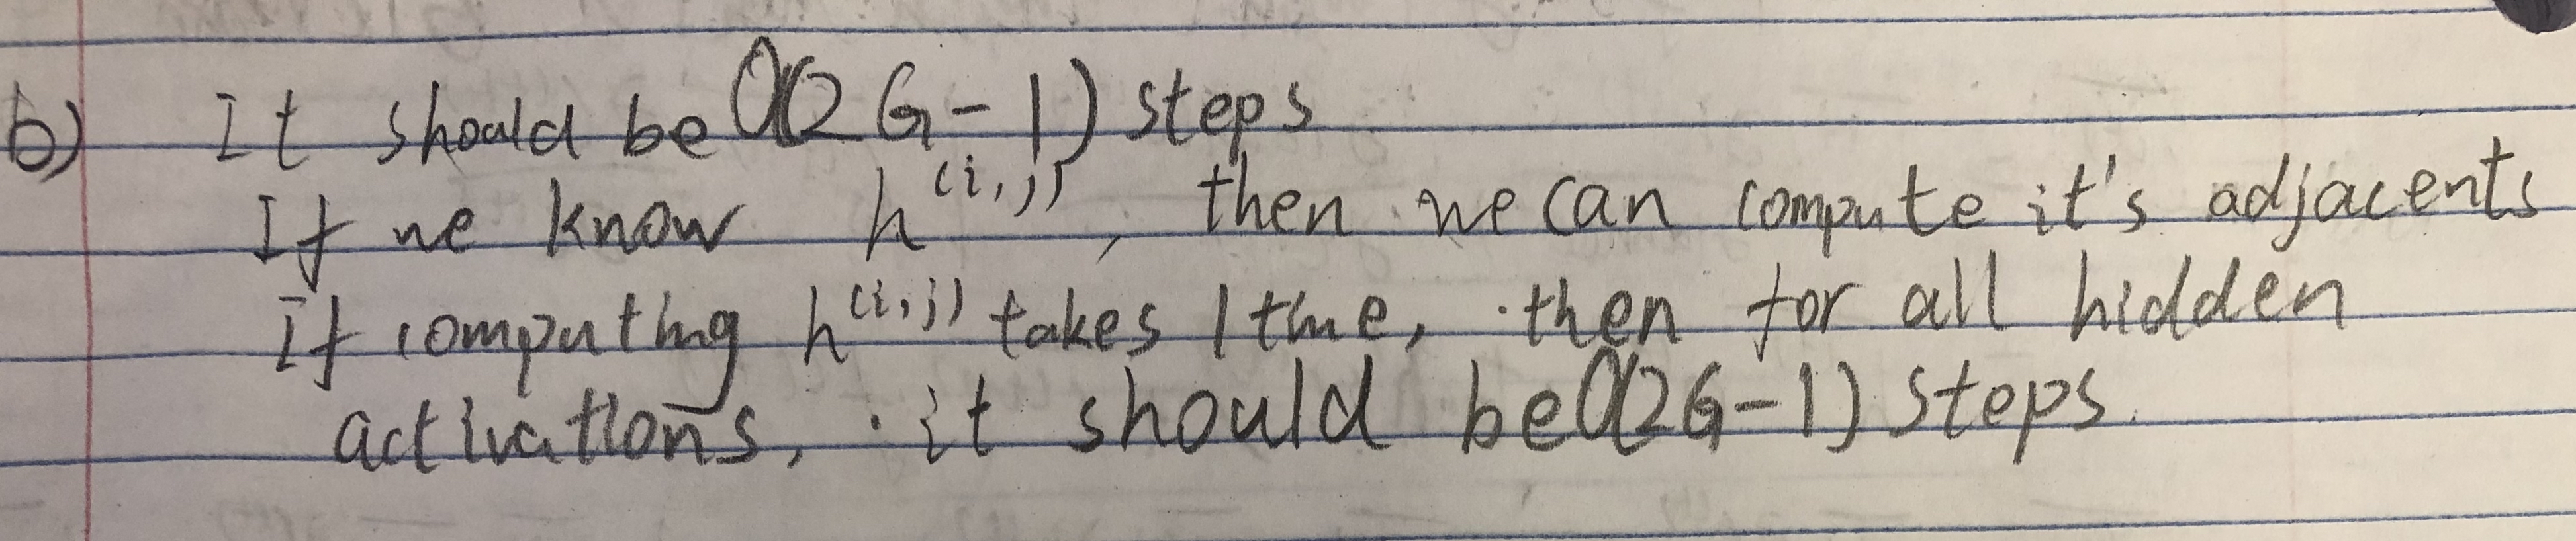 b) It should be O(2G-1) steps
If we know h^(i,j), then we can compute it's adjacents
If computing h^(i,j) takes 1 time, then for all hidden
activations, it should be O(2G-1) steps.